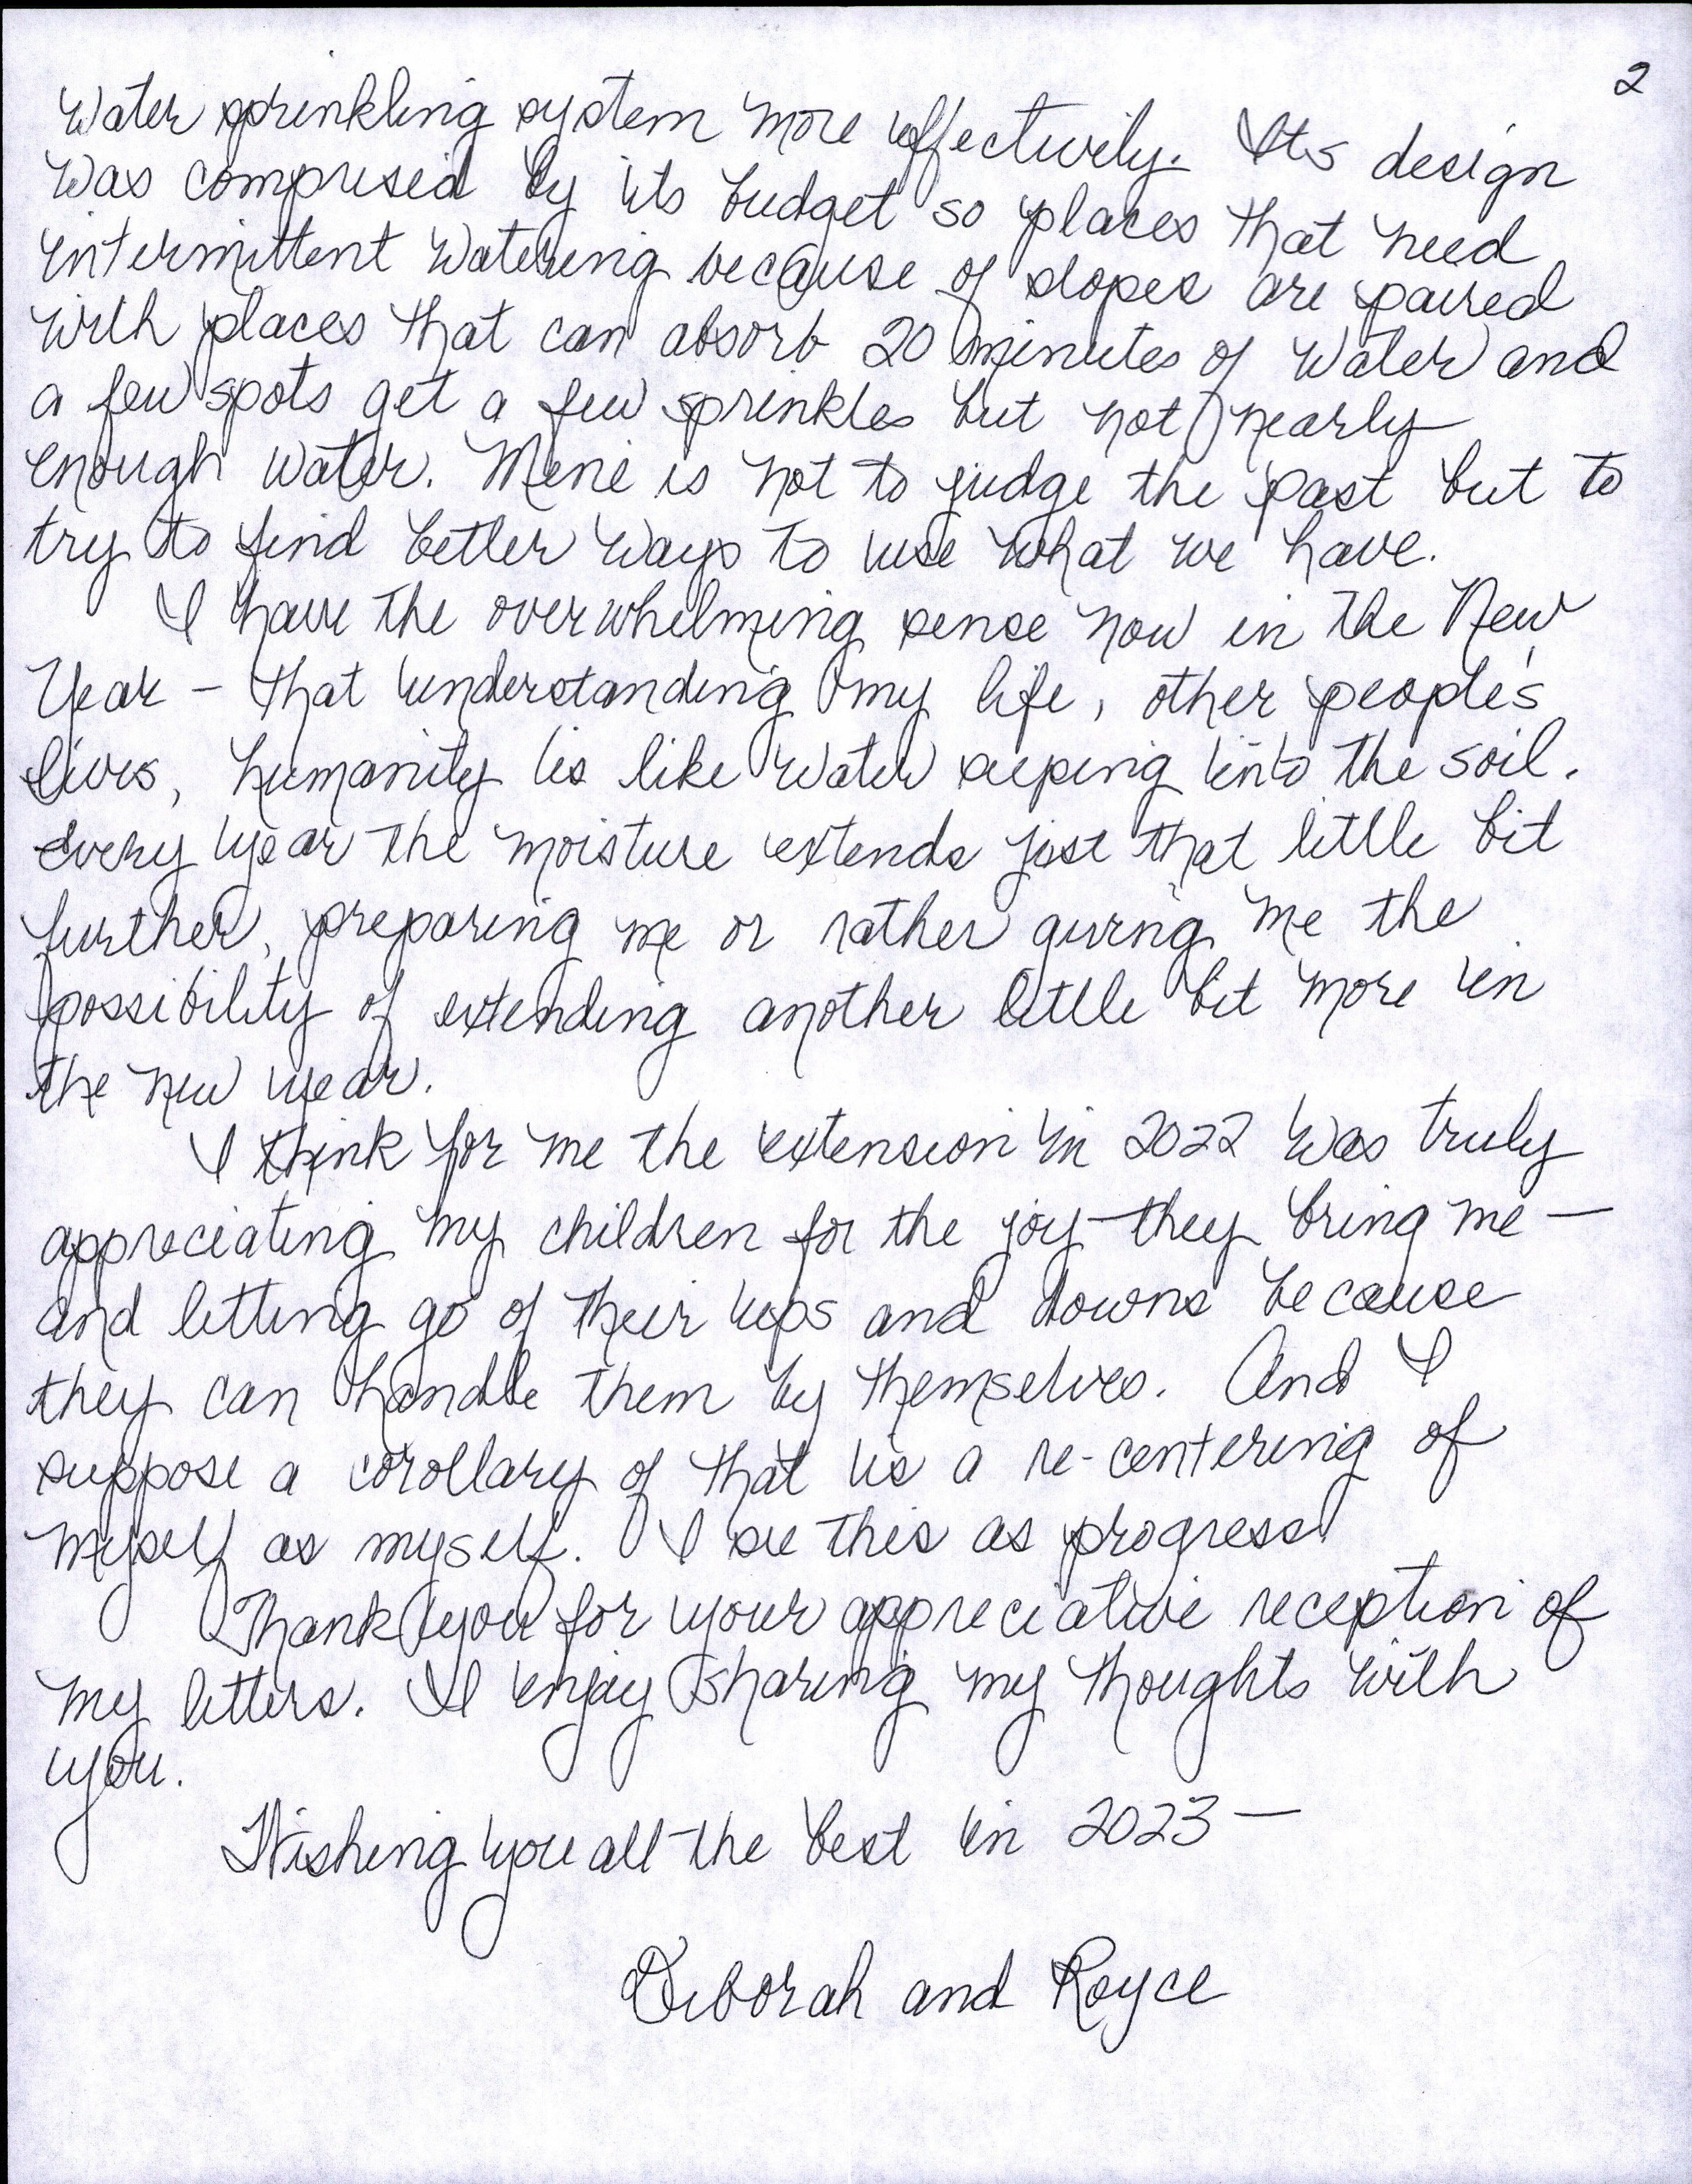 2
Water sprinkling system more effectively. Its design
was comprised by its budget so places that need
intermittent watering because of slopes are paired
with places that can absorb 20 minutes of water and
a few spots get a few sprinkles but not nearly
enough water. Mine is not to judge the past but to
try to find better ways to use what we have.
I have the overwhelming sense now in the New
Year - that understanding my life, other people's
lives, humanity is like water seeping into the soil.
Every year the moisture extends just that little bit
further, preparing me or rather giving me the
possibility of extending another little bit more in
the new year.
I think for me the extension in 2022 was truly
appreciating my children for the joy they bring me —
and letting go of their ups and downs because
they can handle them by themselves. And I
suppose a corollary of that is a re-centering of
myself as myself. I see this as progress!
Thank you for your appreciative reception of
my letters. I enjoy sharing my thoughts with
you.
Wishing you all the best in 2023 —
Deborah and Royce